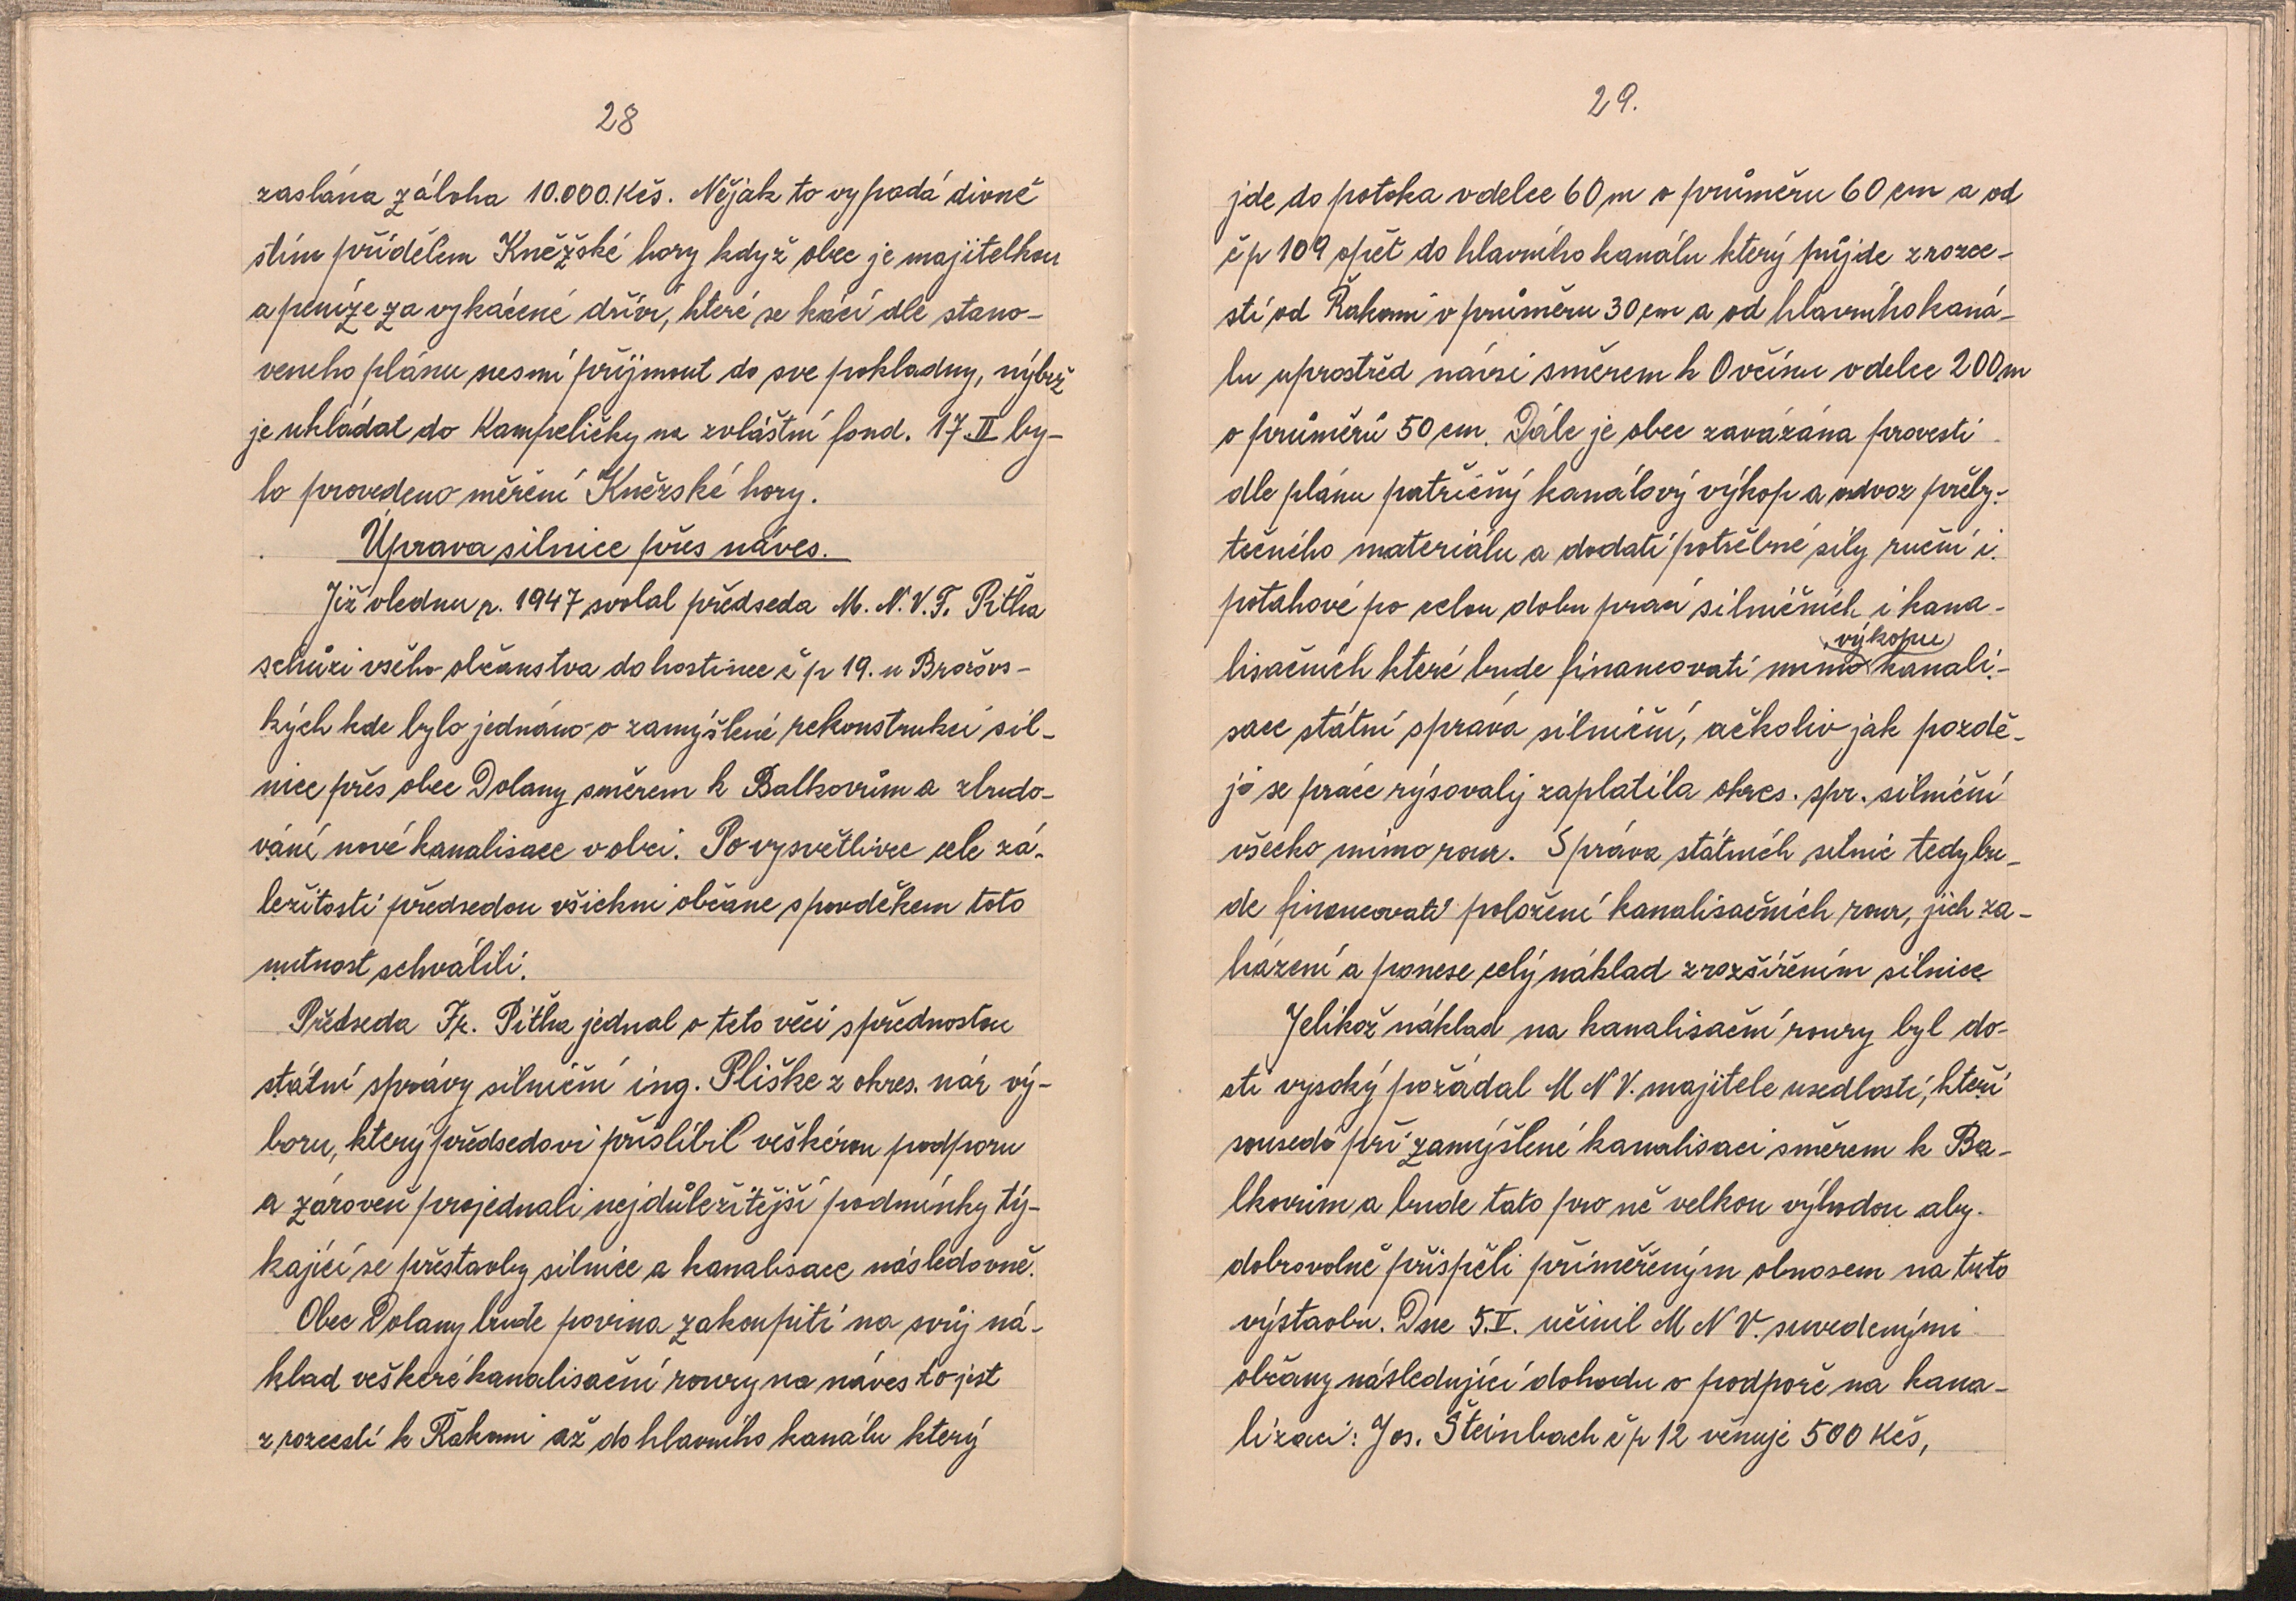 28
zaslána záloha 10.000.Kčs. Nějak to vypadá divně
stím přídělem Kněžské hory když obec je majitelkou
a peníze za vykácené dříví, které se kácí dle stano-
veneho plánu nesmí příjmout do sve pokladny, nýbrž
je ukládat do Kampeličky na zvláštní fond. 17.II by-
lo provedeno měření Kněžské hory.
Úprava silnice přes náves.
Již vlednu r. 1947 svolal předseda M. N. V. F. Pitha
schůzi všeho občanstva do hostince č p 19. u Brožovs-
kých kde bylo jednáno o zamýšlené rekonstrukci sil-
nice přes obec Dolany směrem k Balkovům a zbudo-
vání nové kanalisace v obci. Po vysvětlivce cele zá-
ležitosti předsedou všichni občane spovděkem toto
nutnost schválili.
Předseda Fr. Pitha jednal o teto věci spřednostou
státní správy silniční ing. Pliške z okres. nár vý-
boru, který předsedovi příslíbil veškérou podporu
a zároveň projednali nejdůležitější podmínky tý-
kající se přestavby silnice a kanalisace následovně.
Obec Dolany bude povina zakoupiti na svůj ná-
klad veškeré kanalisační roury na náves to jest
z rozcestí k Řakomi až do hlavního kanálu který
29.
jde do potoka vdelce 60 m o průměru 60 cm a od
č p 109 opět do hlavního kanálu který půjde z rozce-
stí od Řakomi v průměru 30 cm a od hlavního kaná-
lu uprostřed návsi směrem k Ovčínu vdelce 200 m
o průměrů 50 cm. Dále je obec zavázána provesti
dle plánu patřičný kanálový výkop a odvoz přeby-
tečného materiálu a dodati potřebné síly ruční i
potahové po celou dobu prací silničních i kana-
výkopu
lisačních které bude financovati mimo kanali-
sace státní správa silniční, ačkoliv jak pozdě-
jí se práce rýsovaly zaplatila okres. spr. silniční
všecko mimo rour. Správa státních silnic tedy bu-
de financovati položení kanalisačních rour, jich za-
házení a ponese celý náklad zrozšířením silnice
Jelikož náklad na kanalisační roury byl do-
sti vysoký požádal M N V. majitele usedlostí, kteří
sousedí při zamýšlené kanalisaci směrem k Ba-
lkovům a bude tato pro ně velkou výhodou aby
dobrovolně přispěli přiměřeným obnosem na tuto
výstavbu. Dne 5.V. učinil M N V. suvedenými
občany následující dohodu o podpoře na kana-
lizaci: Jos. Šteinbach č p 12 věnuje 500 Kčs,